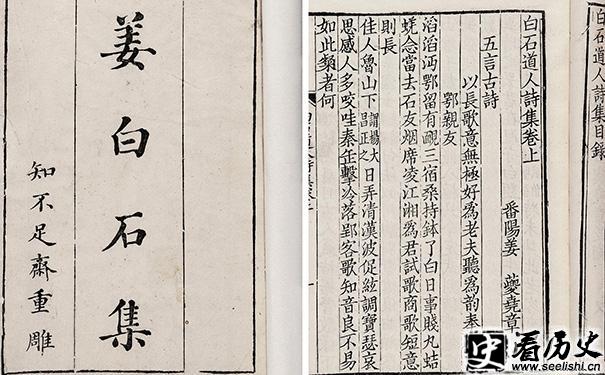 姜白石集
知不足齋重雕
白石道人詩集目錄
白石道人詩集卷上
番陽姜 夔堯章
五言古詩
以長歌意無極好爲老夫聽爲韵奉
鄂親友
滔滔沔鄂留有靦三宿桑持鉢了白日事賤丸蛣
蜣念當去石友烟席凌江湘爲君試歌商歌短意
則長
佳人魯山下謂楊大昌正之日弄清漢波促絃調寶瑟哀
思感人多咬哇秦缶擊冷落郢客歌知音良不易
如此者何
史看历史
www.seelishi.cn